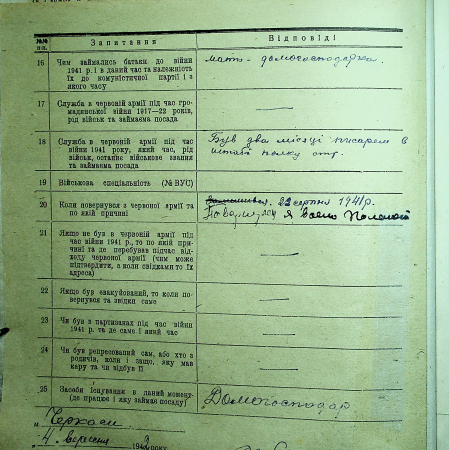 №№ пп. Запитання Відповіді
16 Чим займались батьки до війни
1941 р. і в даний час та належність
їх до комуністичної партії і з
якого часу
мать - домогосподарка.
17 Служба в червоній армії під час гро-
мадянської війни 1917—22 років,
рід військ та займаєма посада
—
18 Служба в червоній армії під час
війни 1941 року, який час, рід
військ, останнє військове звання
та займаєма посада
Був два місяці писарем в
штабі полку
19 Військова спеціяльність (№ ВУС)
—
20 Коли повернувся з червоної армії та
по якій причині
22 серпня 1941 р.
Повернувся я воено Полоной
21 Якщо не був в червоній армії під
час війни 1941 р., то по якій при-
чині та де перебував підчас від-
ходу червоної армії (чим може
підтвердити, а коли свідками то їх
адреса)
—
22 Якщо був евакуйований, то коли по-
вернувся та звідки саме
—
23 Чи був в партизанах під час війни
1941 р. та де саме і який час
—
24 Чи був репресований сам, або хто з
родичів, коли і защо, яку мав
кару та чи відбув її
—
25 Засоби існування в даний момент
(де працює і яку займає посаду)
Домогосподар
м Черкаси.
4. вересня 1942 року